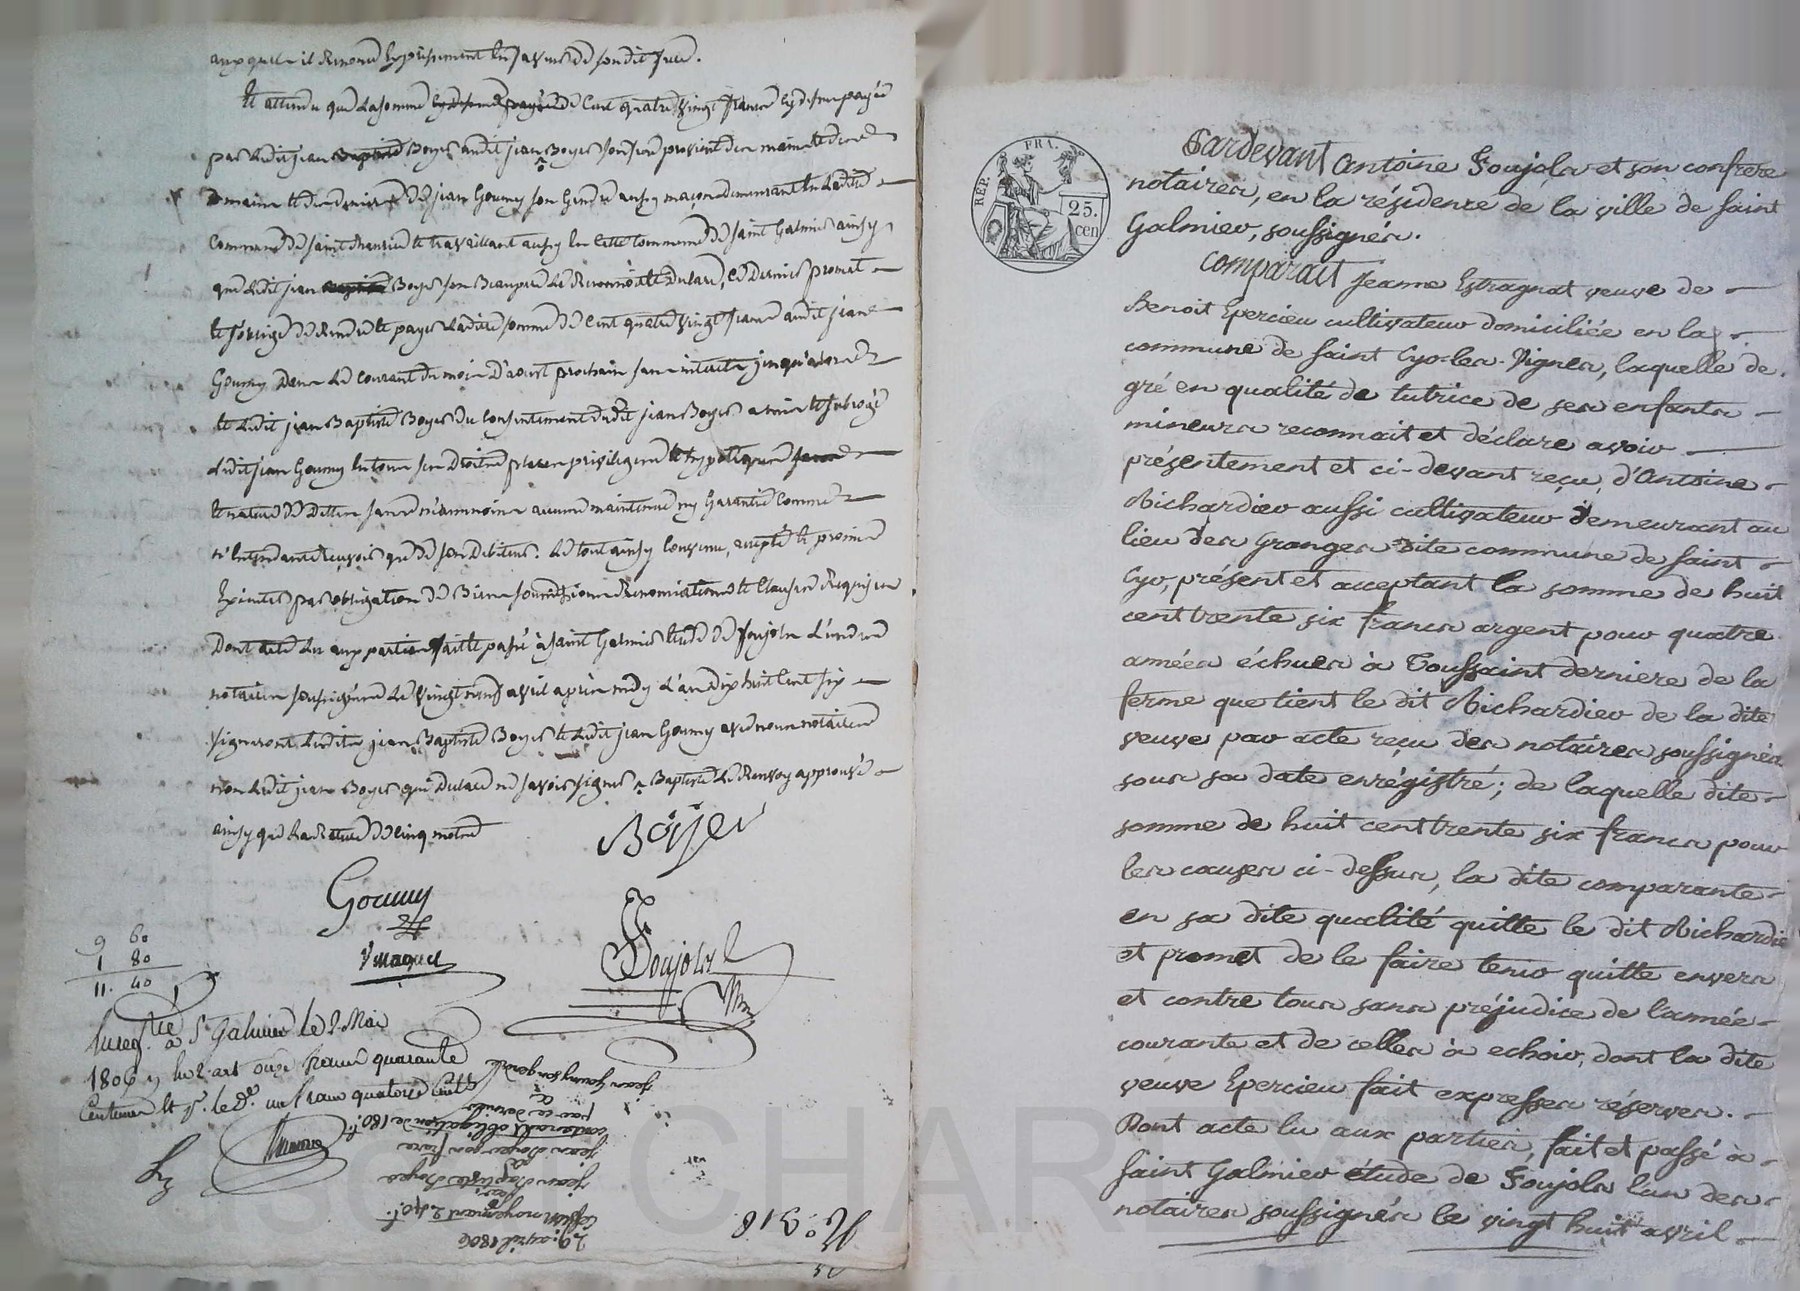 auxquels il renonce expressement en faveur de son dit frere.
Et attendu que la somme de Cent quatre vingt francs cy dessus payée
par ledit jean Boyer audit jean Boyer son frere provient des mains et deniers
de jean Goumy son Gendre aussy maçon demeurant en ladite
Commune de saint et travaillant aussy en cette Commune de saint Galmier ainsy
que ledit jean Boyer son Beaupere le reconnoit et Declare, ce dernier promet
et s'oblige de rendre et payer ladite somme de Cent quatre vingt francs audit jean
Goumy Dans le courant du mois D'aoust prochain sans interets jusqu'alors
et ledit jean Baptiste Boyer du consentement dudit jean Boyer a mis et subrogé
ledit jean Goumy en tous ses Droits places privileges et hypotheques
et nature de Dettes sans néanmoins aucune maintenue ny Garantie Comme
n'entendant recevoir que de son debiteur. Le tout ainsy convenu, accepté et promis
Executer par obligation de Biens soumissions Renonciations et Clauses Requises
Dont acte lu aux parties fait et passé à saint Galmier etude de Soujols L'un des
notaires soussignés le vingt neuf avril après midy L'an dix huit Cent six
signeront lesdits jean Baptiste Boyer et ledit jean Goumy avec nous notaires
non ledit jean Boyer qui Declare ne savoir signer Baptiste Le Renvoy approuvé
ainsy que la Rature de cinq mots
Boyer
Goumy
Soujols
9 60
1 80
11. 40
Enreg.tré à St Galmier le 2 Mai
1806 onze francs quarante
Centimes et un franc quatorze Cent.
jean goumy son gendre
par ce dernier
contenant obligation de 180f.
jean Boyer son frere
jean Baptiste Boyer
par
Cession moyennant 240f.
29. avril 1806
No. 318
REP. FRA.
25.
cen
Pardevant Antoine Soujols et son confrere
notaires, en la résidence de la ville de saint
Galmier, soussignés.
Comparait Jeanne Estragnat veuve de
Benoit Epercieu cultivateur domiciliée en la
commune de saint Cyr-les-Vignes, laquelle de
gré en qualité de tutrice de ses enfants
mineurs reconnait et déclare avoir
présentement et ci-devant reçu, d'Antoine
Richardier aussi cultivateur demeurant au
lieu des Granges dite commune de saint
Cyr, présent et acceptant la somme de huit
cent trente six francs argent pour quatre
années échues à Toussaint derniere de la
ferme que tient le dit Richardier de la dite
veuve par acte reçu des notaires soussignés
sous sa date enrégistré; de laquelle dite
somme de huit cent trente six francs pour
les causes ci-dessus, la dite comparante
en sa dite qualité quitte le dit Richardie
et promet de le faire tenir quitte envers
et contre tous sans préjudice de l'année
courante et de celles à echoir, dont la dite
veuve Epercieu fait expresses réserves.
Dont acte lu aux parties, fait et passé à
saint Galmier étude de Soujols l'un des
notaires soussignés le vingt huit avril